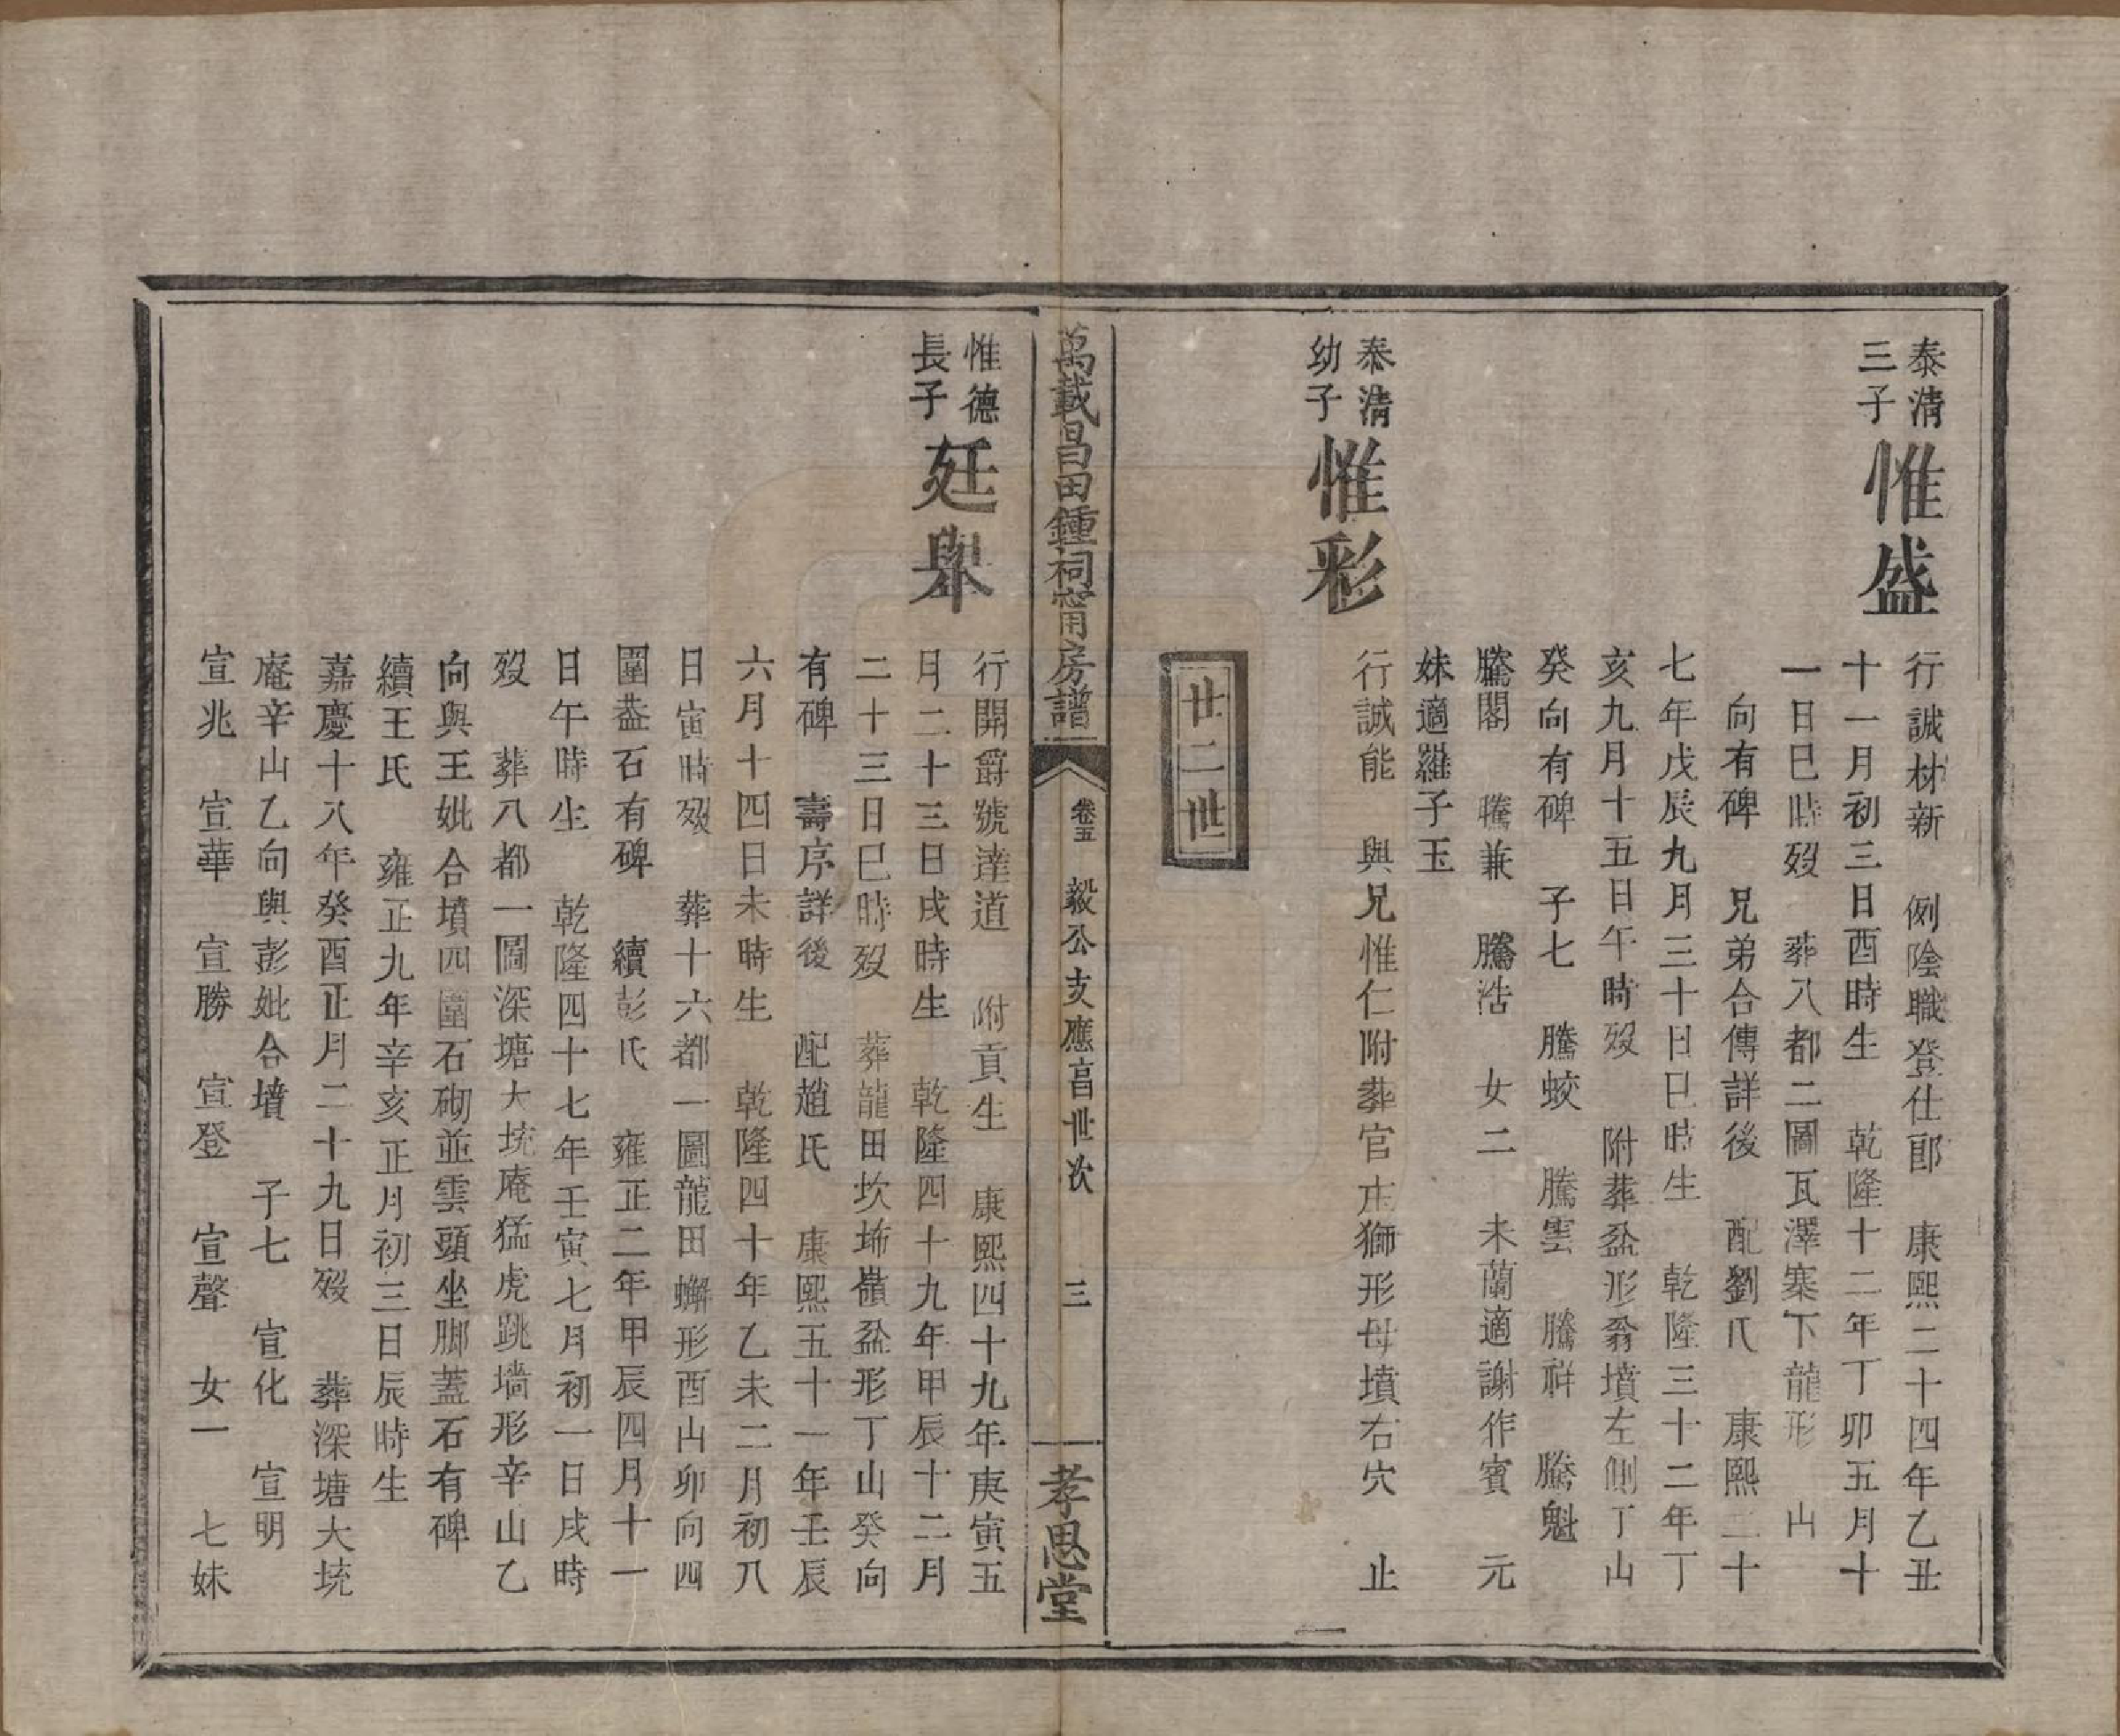 泰清
三子
惟盛
行誠材新 例陰職登仕郎 康熙二十四年乙丑
十一月初三日酉時生 乾隆十二年丁卯五月十
一日巳時歿 葬八都二圖瓦澤寨下龍形 山
向有碑 兄弟合傳詳後 配劉氏 康熙二十
七年戊辰九月三十日巳時生 乾隆三十二年丁
亥九月十五日午時歿 附葬盆形翁墳左側丁山
癸向有碑 子七 騰蛟 騰雲 騰祥 騰魁
騰閣 騰兼 騰浩 女二 未蘭適謝作賓 元
妹適羅子玉
泰清
幼子
惟彩
行誠能 與兄惟仁附葬官庄獅形母墳右穴 止
廿二世
萬載昌田鍾祠甯房譜
卷五
毅公支應昌世次
三
孝思堂
惟德
長子
廷舉
行開爵號達道 附貢生 康熙四十九年庚寅五
月二十三日戌時生 乾隆四十九年甲辰十二月
二十三日巳時歿 葬龍田坎埽嶺盆形丁山癸向
有碑 壽序詳後 配趙氏 康熙五十一年壬辰
六月十四日未時生 乾隆四十年乙未二月初八
日寅時歿 葬十六都一圖龍田蠏形酉山卯向四
圍葢石有碑 續彭氏 雍正二年甲辰四月十一
日午時生 乾隆四十七年壬寅七月初一日戌時
歿 葬八都一圖深塘大垸庵猛虎跳墻形辛山乙
向與王妣合墳四圍石砌並雲頭坐脚蓋石有碑
續王氏 雍正九年辛亥正月初三日辰時生
嘉慶十八年癸酉正月二十九日歿 葬深塘大垸
庵辛山乙向與彭妣合墳 子七 宣化 宣明
宣兆 宣華 宣勝 宣登 宣聲 女一 七妹